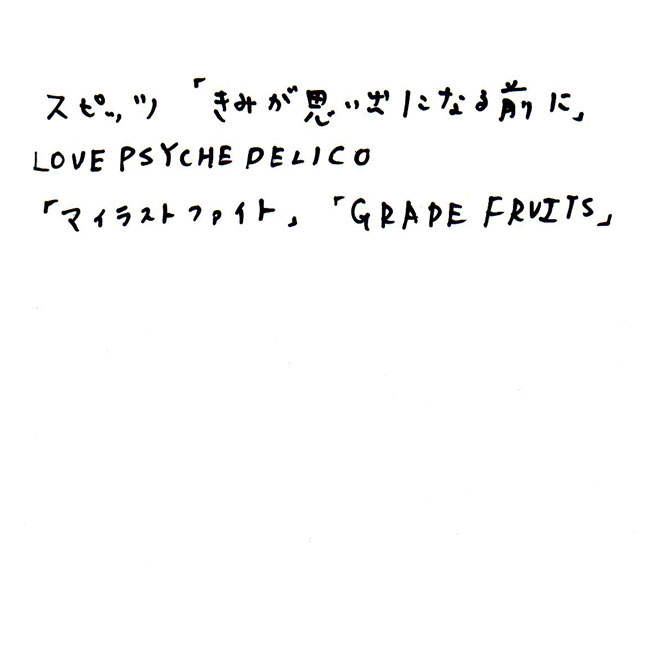 スピッツ 「きみが思い出になる前に」
LOVE PSYCHEDELICO
「マイラストファイト」 「GRAPE FRUITS」